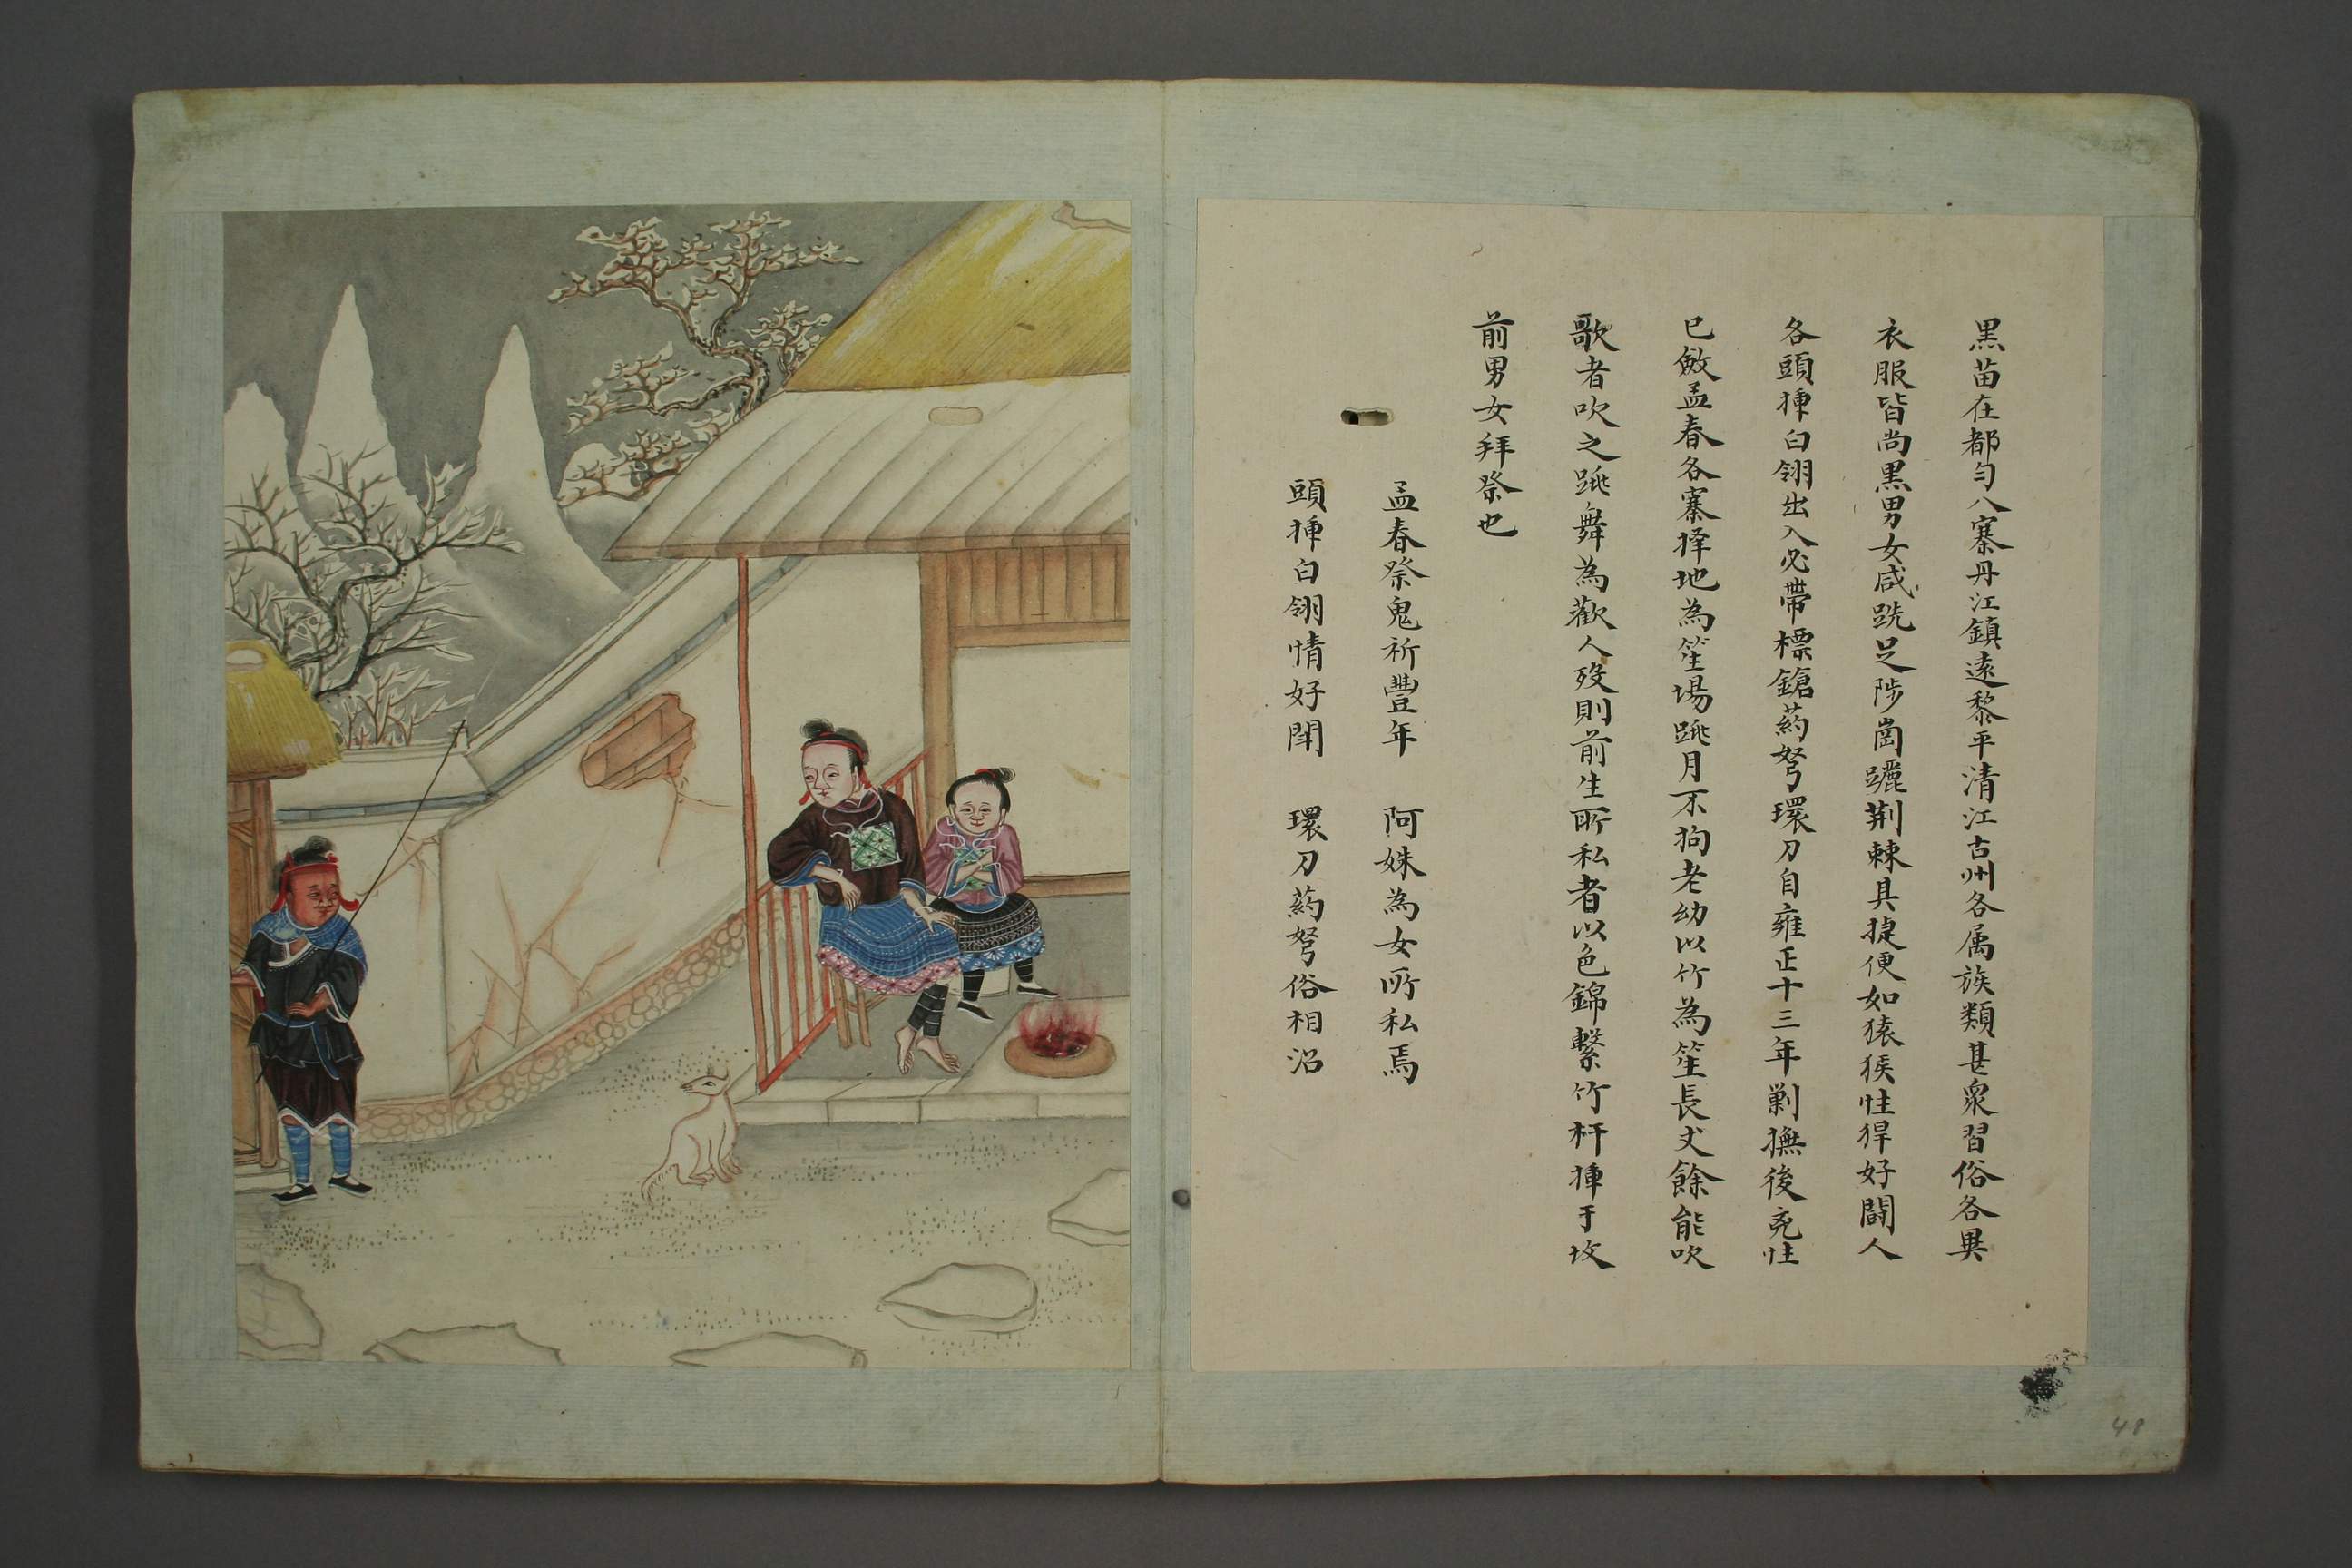 黑苗在都勻八寨丹江鎮遠黎平清江古州各属族類甚衆習俗各異
衣服皆尚黑男女咸跣足陟崗躧荆棘具捷便如猿猴性悍好鬪人
各頭揷白翎出入必帶標鎗葯弩環刀自雍正十三年剿撫後兇性
已斂孟春各寨擇地為笙場跳月不狥老幼以竹為笙長丈餘能吹
歌者吹之跳舞為歡人歿則前生所私者以色錦繫竹杆揷于坟
前男女拜祭也
孟春祭鬼祈豐年 阿姝為女所私焉
頭揷白翎情好閗 環刀葯弩俗相沿
48